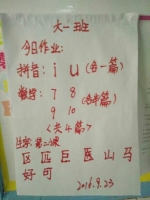 大一班
今日作业:
拼音: i u (各一篇)
数字: 7 8 (各半篇)
9 10
<共4篇>
生字: 第二课
区 匹 巨 医 山 马
好 可
2016.9.23